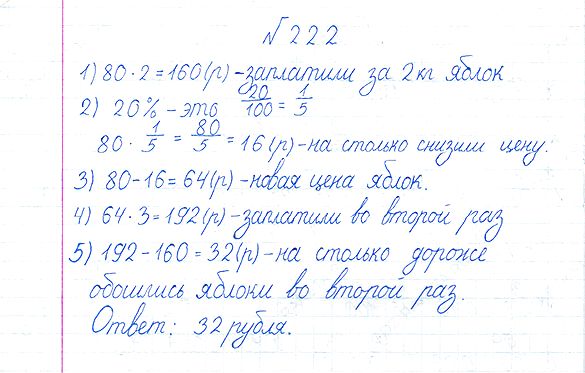 №222
1) 80·2=160(р)-заплатили за 2кг яблок
2) 20% - это 20/100 = 1/5
80 · 1/5 = 80/5 = 16(р)-на столько снизили цену.
3) 80-16=64(р)-новая цена яблок.
4) 64·3=192(р)-заплатили во второй раз
5) 192-160=32(р)-на столько дороже
обошлись яблоки во второй раз.
Ответ: 32 рубля.